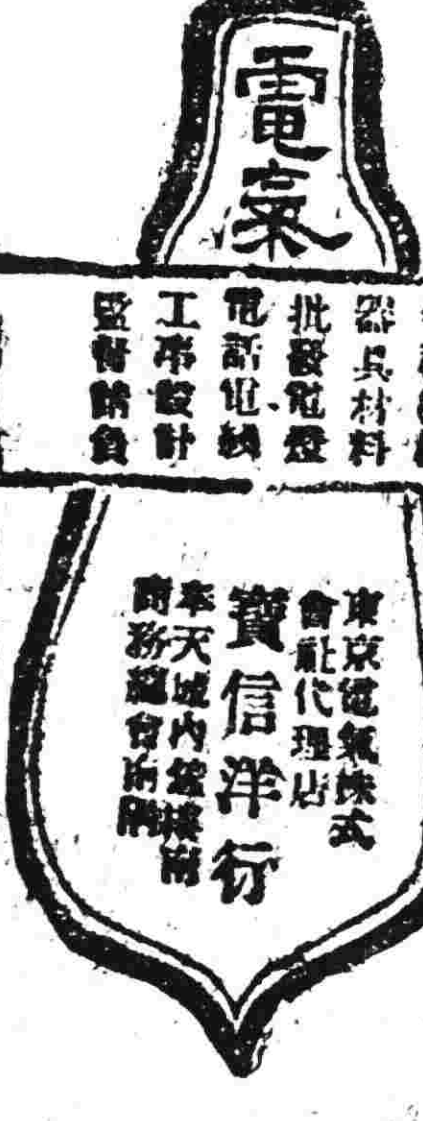 電業
器具材料
批發電燈
電話電線
工事設計
監督請負
東京電氣株式
會社代理店
寶信洋行
奉天城內鼓樓南
商務總會南隣